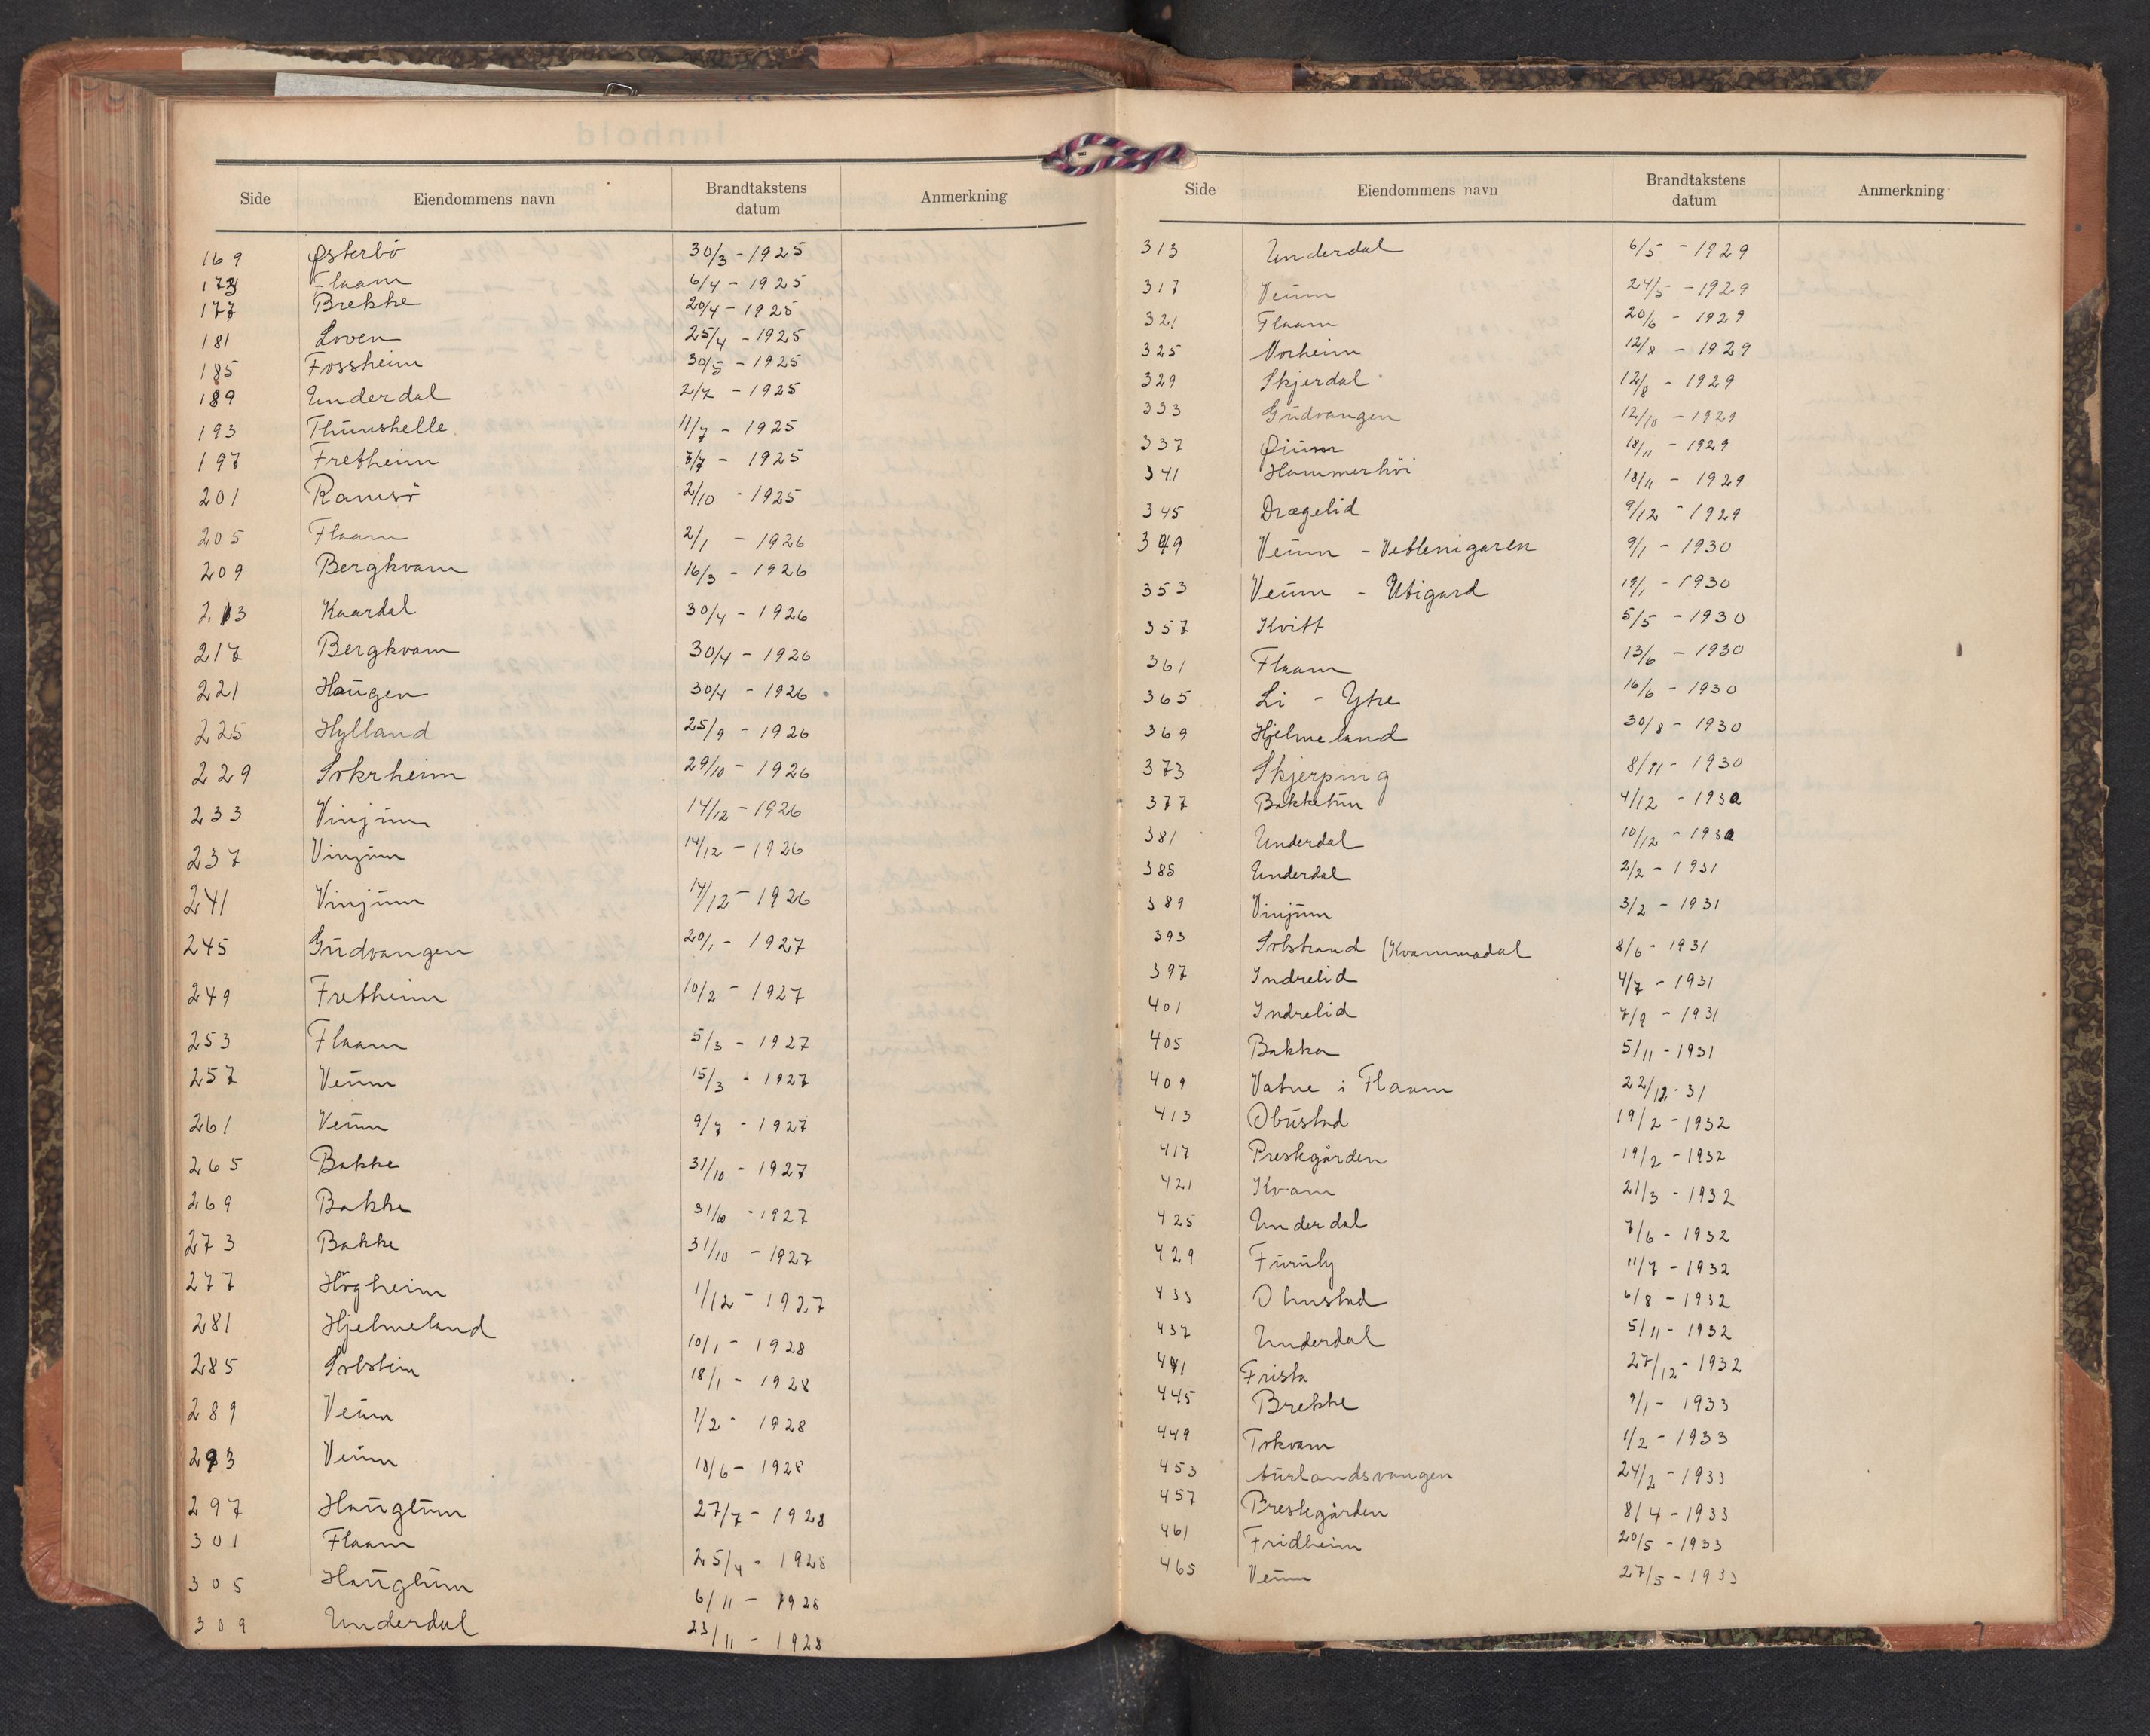 Side Eiendommens navn Brandtakstens datum Anmerkning
169 Østerbö 30/3 - 1925
173 Flaam 6/4 - 1925
177 Brekke 20/4 - 1925
181 Loven 25/4 - 1925
185 Fossheim 30/5 - 1925
189 Underdal 2/7 - 1925
193 Thunshelle 11/7 - 1925
197 Fretheim 7/7 - 1925
201 Ramsö 2/10 - 1925
205 Flaam 2/1 - 1926
209 Bergkvam 16/3 - 1926
213 Kaardal 30/4 - 1926
217 Bergkvam 30/4 - 1926
221 Haugen 30/4 - 1926
225 Hylland 25/9 - 1926
229 29/10 - 1926
233 Vinjum 14/12 - 1926
237 Vinjum 14/12 - 1926
241 Vinjum 14/12 - 1926
245 Gudvangen 20/1 - 1927
249 Fretheim 10/2 - 1927
253 Flaam 5/3 - 1927
257 Veum 15/3 - 1927
261 Veum 9/7 - 1927
265 Bakke 31/10 - 1927
269 Bakke 31/10 - 1927
273 Bakke 31/10 - 1927
277 Högheim 1/12 - 1927
281 Hjelmeland 10/1 - 1928
285 18/1 - 1928
289 Veum 1/2 - 1928
293 Veum 18/6 - 1928
297 Haugtun 27/7 - 1928
301 Flaam 25/4 - 1928
305 Haugtun 6/11 - 1928
309 Underdal 23/11 - 1928
Side Eiendommens navn Brandtakstens datum Anmerkning
313 Underdal 6/5 - 1929
317 Veum 24/5 - 1929
321 Flaam 20/6 - 1929
325 Norheim 12/8 - 1929
329 Skjerdal 12/8 - 1929
333 Gudvangen 12/10 - 1929
337 Öium 18/11 - 1929
341 Hammerhöi 18/11 - 1929
345 Drægelid 9/12 - 1929
349 Veum - Vetlenigaren 9/1 - 1930
353 Veum - Utigard 19/1 - 1930
357 Kvitt 5/5 - 1930
361 Flaam 13/6 - 1930
365 Li - Ytre 16/6 - 1930
369 Hjelmeland 30/8 - 1930
373 Skjerping 8/11 - 1930
377 Bakketun 4/12 - 1930
381 Underdal 10/12 - 1930
385 Underdal 2/2 - 1931
389 Vinjum 3/2 - 1931
393 Solstrand (Kvammadal 8/6 - 1931
397 Indrelid 4/7 - 1931
401 Indrelid 7/9 - 1931
405 Bakka 5/11 - 1931
409 Vatne i Flaam 22/12 - 31
413 Obustad 19/2 - 1932
417 Prestegården 19/2 - 1932
421 Kvam 21/3 - 1932
425 Underdal 7/6 - 1932
429 Furuly 11/7 - 1932
433 Olmstad 6/8 - 1932
437 Underdal 5/11 - 1932
441 Frista 27/12 - 1932
445 Brekke 9/1 - 1933
449 Tokvam 1/2 - 1933
453 Aurlandsvangen 24/2 - 1933
457 Prestegården 8/4 - 1933
461 Fridheim 20/5 - 1933
465 Veum 27/5 - 1933